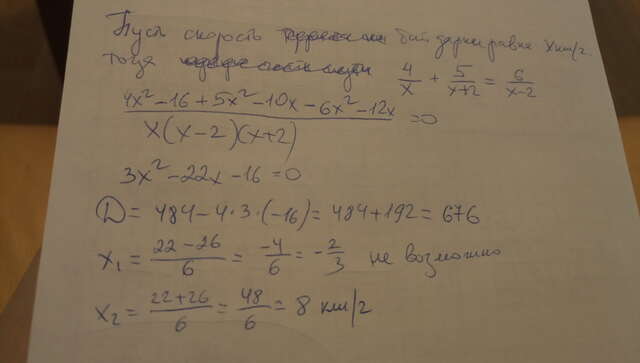 Пусть скорость байдарки равна x км/г.
тогда 4/x + 5/(x+2) = 6/(x-2)
(4x² - 16 + 5x² - 10x - 6x² - 12x) / (x(x-2)(x+2)) = 0
3x² - 22x - 16 = 0
D = 484 - 4·3·(-16) = 484 + 192 = 676
x₁ = (22 - 26)/6 = -4/6 = -2/3 не возможно
x₂ = (22+26)/6 = 48/6 = 8 км/г